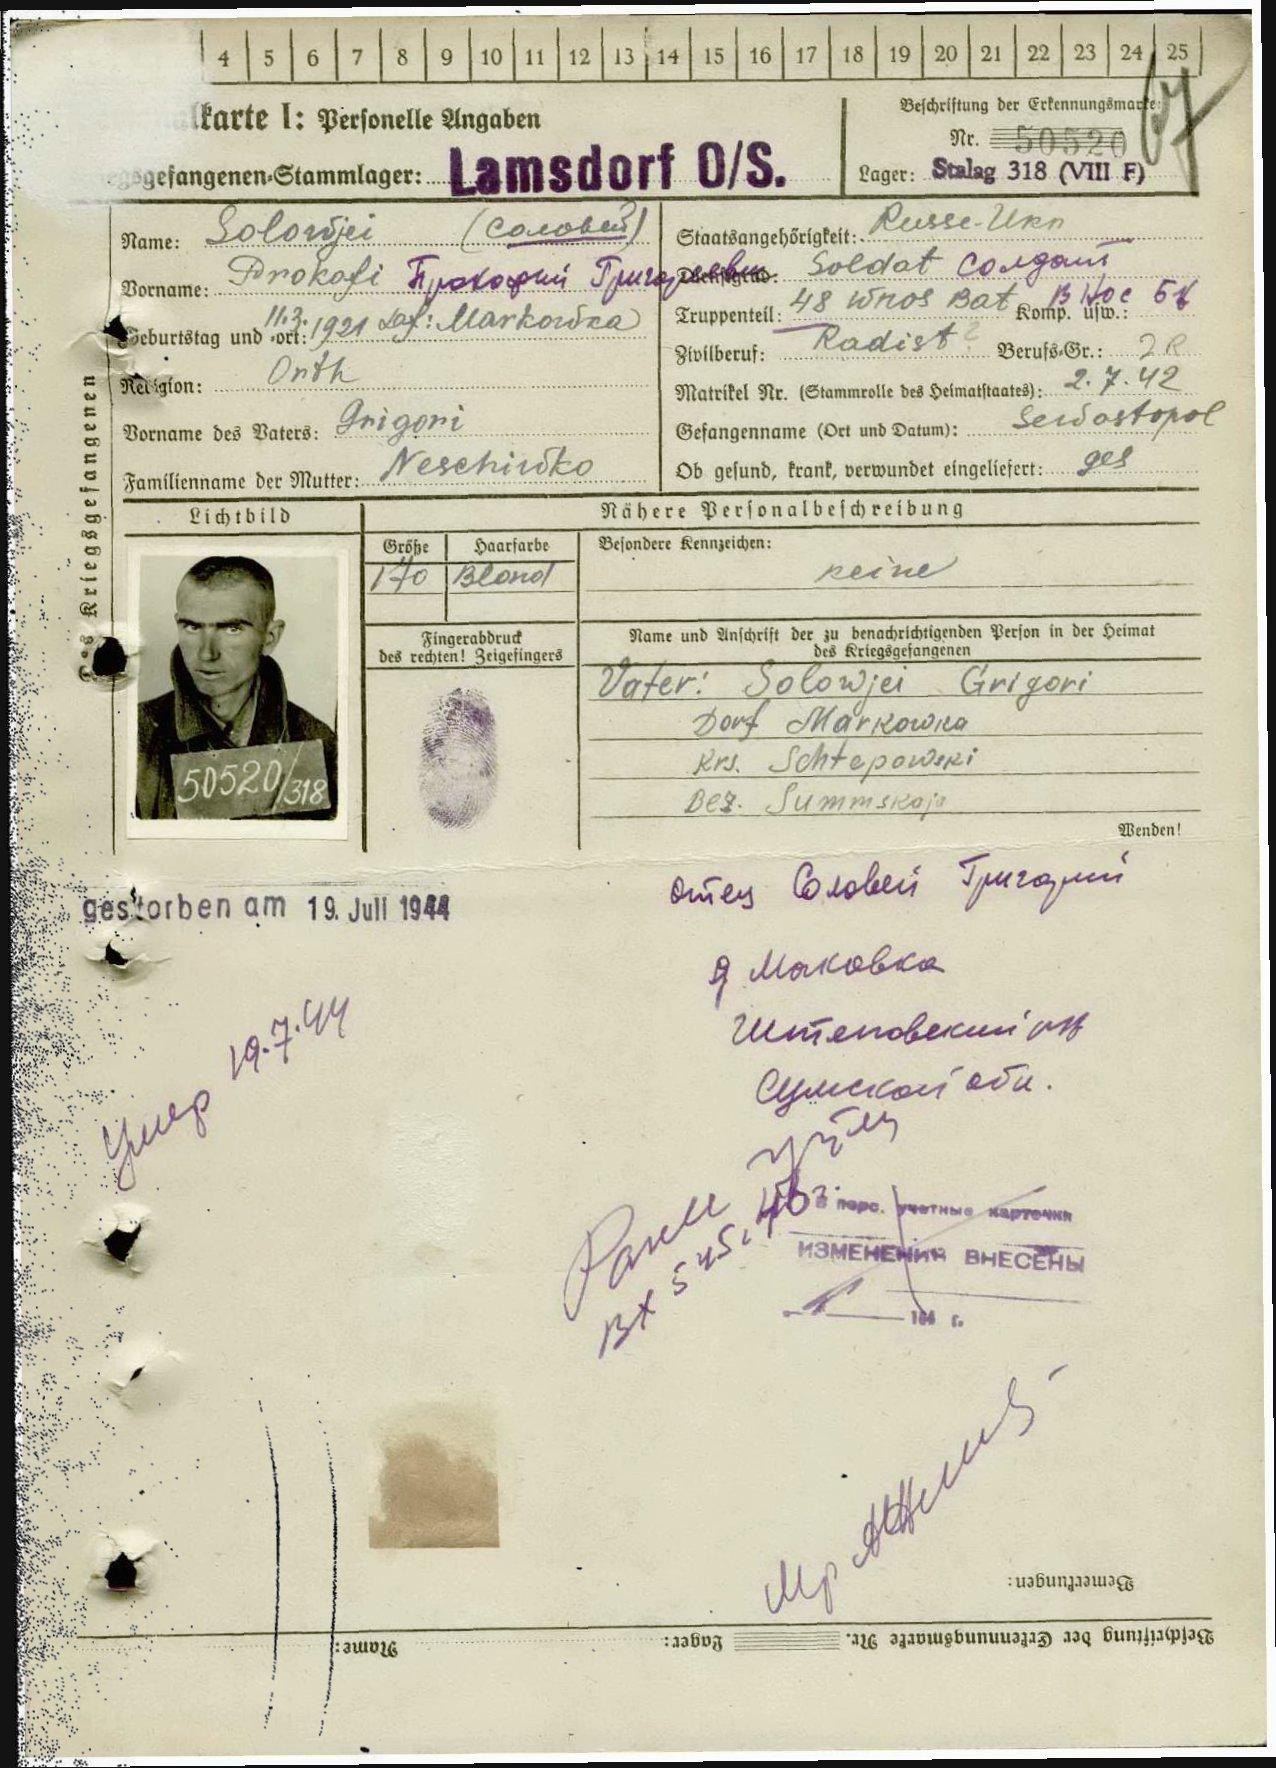 4 5 6 7 8 9 10 11 12 13 14 15 16 17 18 19 20 21 22 23 24 25
lkarte I: Personelle Angaben
Beschriftung der Erkennungsmarke:
Nr. 50520
gsgefangenen-Stammlager: Lamsdorf O/S.
Lager: Stalag 318 (VIII F)
Name: Solowjei (Соловей)
Staatsangehörigkeit: Russe-Ukr
Vorname: Prokofi Прокофий Григорьевич
Dienstgrad: Soldat Солдат
Truppenteil: 48 Wnos Bat Komp. usw.: ВНОС бт
Geburtstag und -ort: 11.3.1921 Markowka
Zivilberuf: Radist? Berufs-Gr.:
Religion: Orth
Matrikel Nr. (Stammrolle des Heimatstaates): 2.7.42
Vorname des Vaters: Grigori
Gefangenname (Ort und Datum): Sewastopol
Familienname der Mutter: Neschiwko
Ob gesund, krank, verwundet eingeliefert: ges
Kriegsgefangenen
Lichtbild
Nähere Personalbeschreibung
Größe Haarfarbe
170 Blond
Besondere Kennzeichen:
keine
Fingerabdruck
des rechten! Zeigefingers
50520/318
Name und Anschrift der zu benachrichtigenden Person in der Heimat
des Kriegsgefangenen
Vater: Solowjei Grigori
Dorf Markowka
Krs. Schtepowski
Bez. Summskaja
Wenden!
gestorben am 19. Juli 1944
отец Соловей Григорий
д Маковка
Штеповский
Сумской обл.
Умер 19.7.44
В перс. учетные карточки
ИЗМЕНЕНИЯ ВНЕСЕНЫ
194 г.
Bemerkungen:
Beschriftung der Erkennungsmarke Nr. Lager: Name: